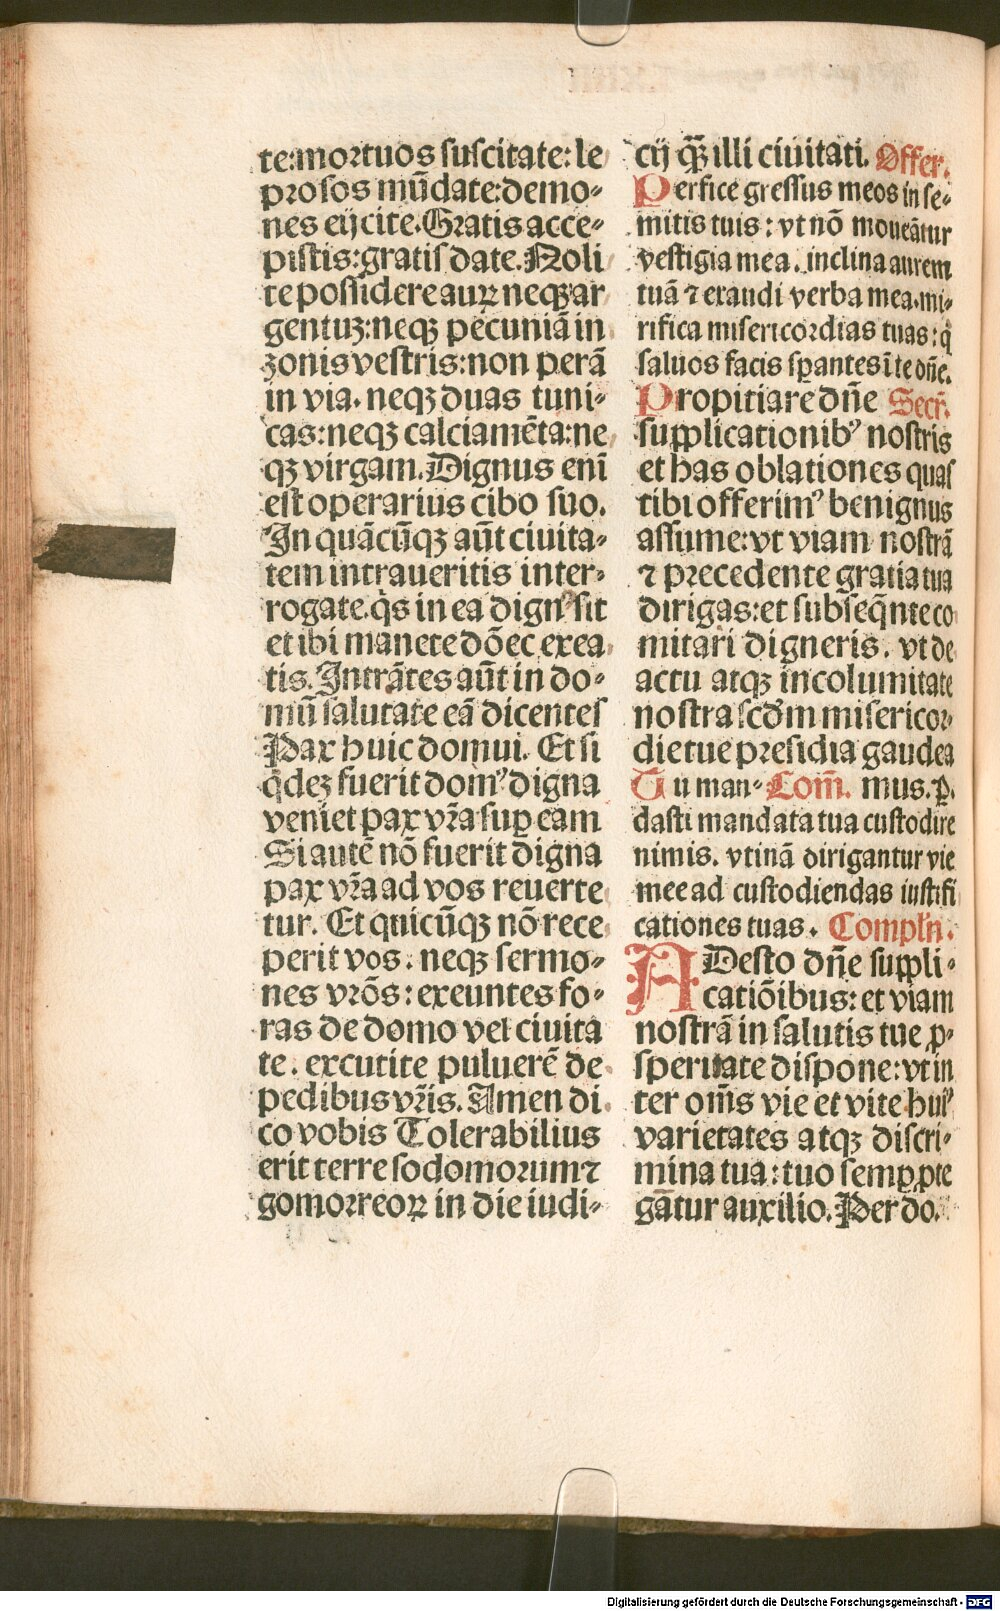 te:mortuos suscitate: le
prosos mūdate: demo-
nes eijcite. Gratis acce-
pistis: gratis date. Noli
te possidere auꝝ neqꝫ ar
gentuꝫ: neqꝫ pecuniā in
zonis vestris: non perā
in via. neqꝫ duas tuni-
cas: neqꝫ calciamēta: ne
qꝫ virgam. Dignus enī
est operarius cibo suo.
In quācūqꝫ aūt ciuita-
tem intraueritis inter-
rogate. q̇s in ea dignꝰ sit
et ibi manete dōec exea
tis. Intrātes aūt in do-
mū salutate eā dicentes
Pax huic domui. Et si
q̇deꝫ fuerit domꝰ digna
veniet pax vr̄a suꝑ eam
Si autē nō fuerit digna
pax vr̄a ad vos reuerte
tur. Et quicūqꝫ nō rece
perit vos. neqꝫ sermo-
nes vrōs: exeuntes fo-
ras de domo vel ciuita
te. excutite puluerē de
pedibus vr̄is. Amen di
co vobis Tolerabilius
erit terre sodomorum ⁊
gomorreoꝝ in die iudi-
cij qꝫ̄ illi ciuitati. Offer.
Perfice gressus meos in se-
mitis tuis: vt nō moueātur
vestigia mea. inclina aurem
tuā ⁊ exaudi verba mea. mi-
rifica misericordias tuas: q̇
saluos facis sꝑantes ī te dn̄e.
Propitiare dn̄e Secr̄.
supplicationibꝰ nostris
et has oblationes quas
tibi offerimꝰ benignus
assume: vt viam nostrā
⁊ precedente gratia tua
dirigas: et subseq̄nte co
mitari digneris. vt de
actu atqꝫ incolumitate
nostra scd̄m misericor-
die tue presidia gaudea
Tu man- Com̄. mus. ꝑ.
dasti mandata tua custodire
nimis. vtinā dirigantur vie
mee ad custodiendas iustifi
cationes tuas. Compln̄.
ADesto dn̄e suppli-
catiōibus: et viam
nostrā in salutis tue ꝓ-
speritate dispone: vt in
ter om̄s vie et vite huiꝰ
varietates atqꝫ discri-
mina tua: tuo semꝑ ꝓte
gātur auxilio. Per do.
Digitalisierung gefördert durch die Deutsche Forschungsgemeinschaft - DFG